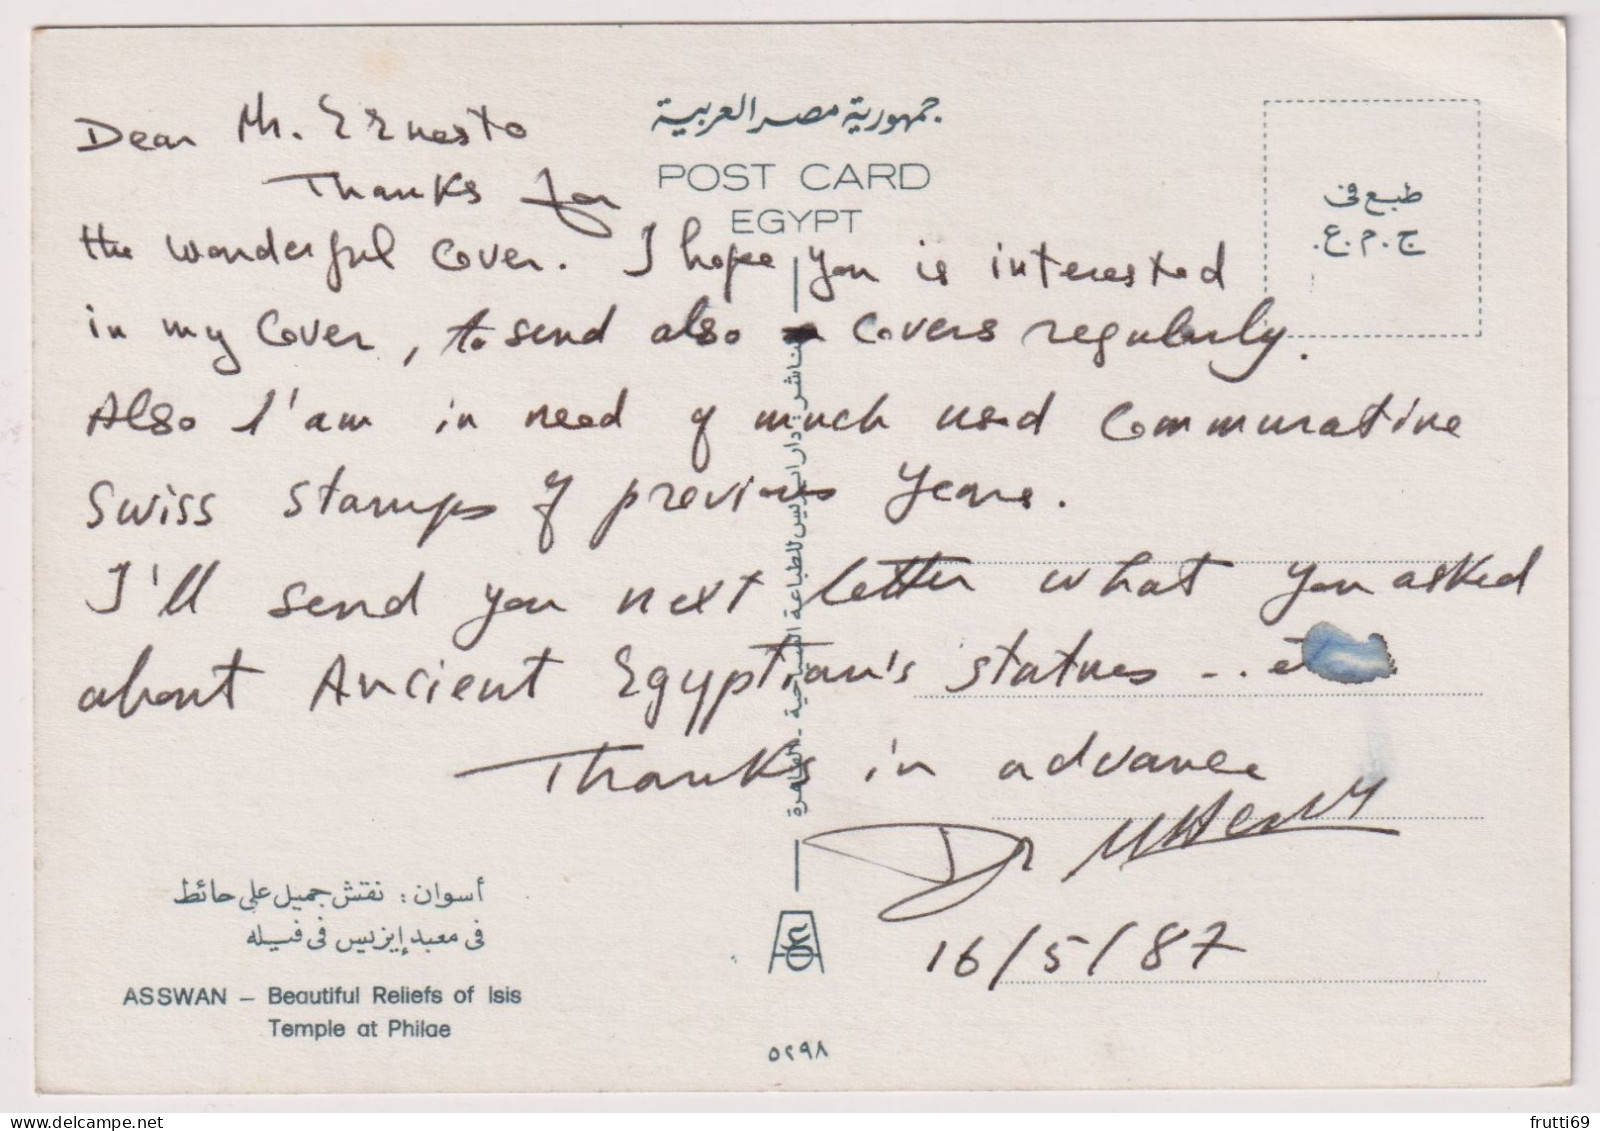 Dear Mr. Ernesto
Thanks for
the wonderful Cover. I hope you is interested
in my Cover, to send also covers regularly.
Also I'am in need of much used Commurative
Swiss stamps of previous years.
I'll send you next letter what you asked
about Ancient Egyptian's statues ..
Thanks in advance
Dr
16/5/87
جمهورية مصر العربية
POST CARD
EGYPT
طبع في
ج.م.ع.
أسوان : نقش جميل على حائط
في معبد إيزيس في فيله
ASSWAN – Beautiful Reliefs of Isis
Temple at Philae
٥٢٩٨
frutti69